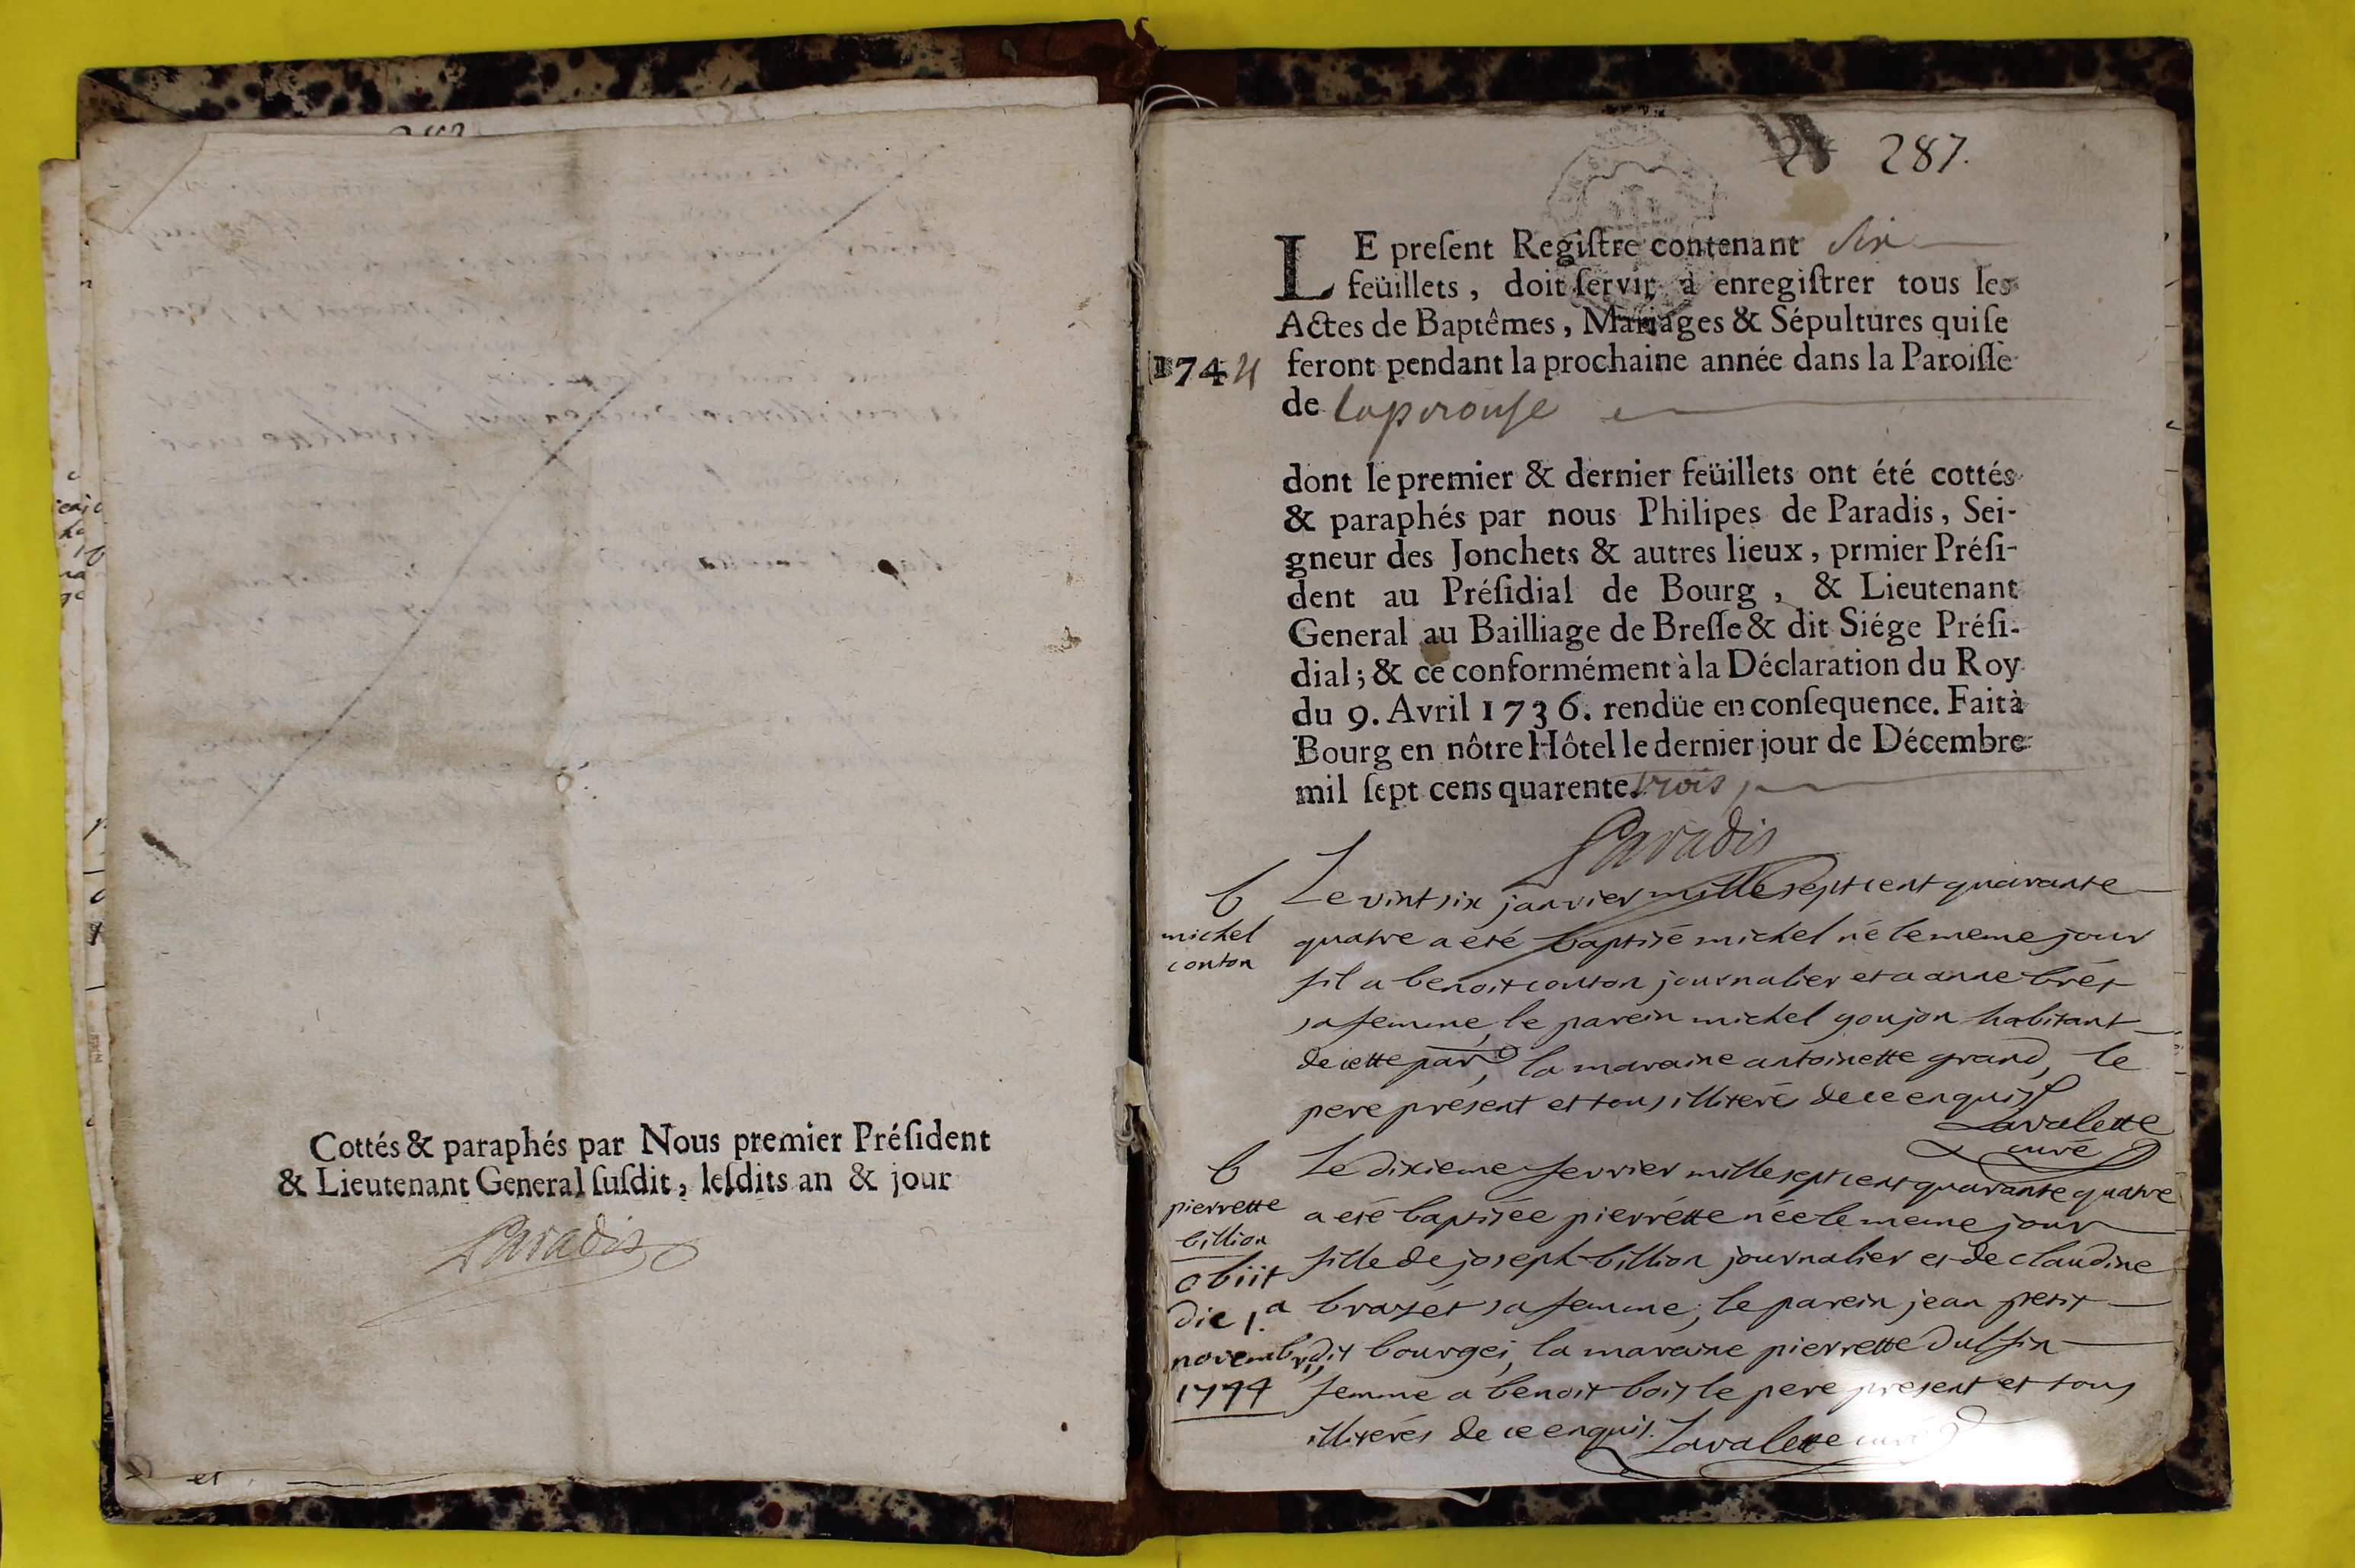 Cottés & paraphés par Nous premier Préſident
& Lieutenant General ſuſdit, leſdits an & jour
Paradis
287.
LE preſent Regiſtre contenant six
feüillets, doit ſervir à enregiſtrer tous les
Actes de Baptêmes, Mariages & Sépultures qui ſe
1744 feront pendant la prochaine année dans la Paroiſſe
de laperouse
dont le premier & dernier feüillets ont été cottés
& paraphés par nous Philipes de Paradis, Sei-
gneur des Jonchets & autres lieux, prmier Préſi-
dent au Préſidial de Bourg, & Lieutenant
General au Bailliage de Breſſe & dit Siége Préſi-
dial; & ce conformément à la Déclaration du Roy
du 9. Avril 1736. rendüe en conſequence. Fait à
Bourg en nôtre Hôtel le dernier jour de Décembre
mil ſept cens quarente. trois
Paradis
b
michel
conton
Le vint six janvier mille sept cent quarante
quatre a eté baptisé michel né le meme jour
fil a benoit conton journalier et a anne brét
sa femme, le parein michel goujon habitant
de cette par, la maraine antoinette grand, le
pere present et tous illiterés de ce enquis
Lavalette
curé
b
pierrette
billion
obiit
die 1.a
novembris
1744
Le dixieme fevrier mille sept cent quarante quatre
a eté baptisée pierrétte née le meme jour
fille de joseph billion journalier et de claudine
brazét sa femme; le parein jean petit
dit bourgei, la maraine pierrette dulfin
femme a benoit bois le pere present et tous
illiterés de ce enquis. Lavalette curé